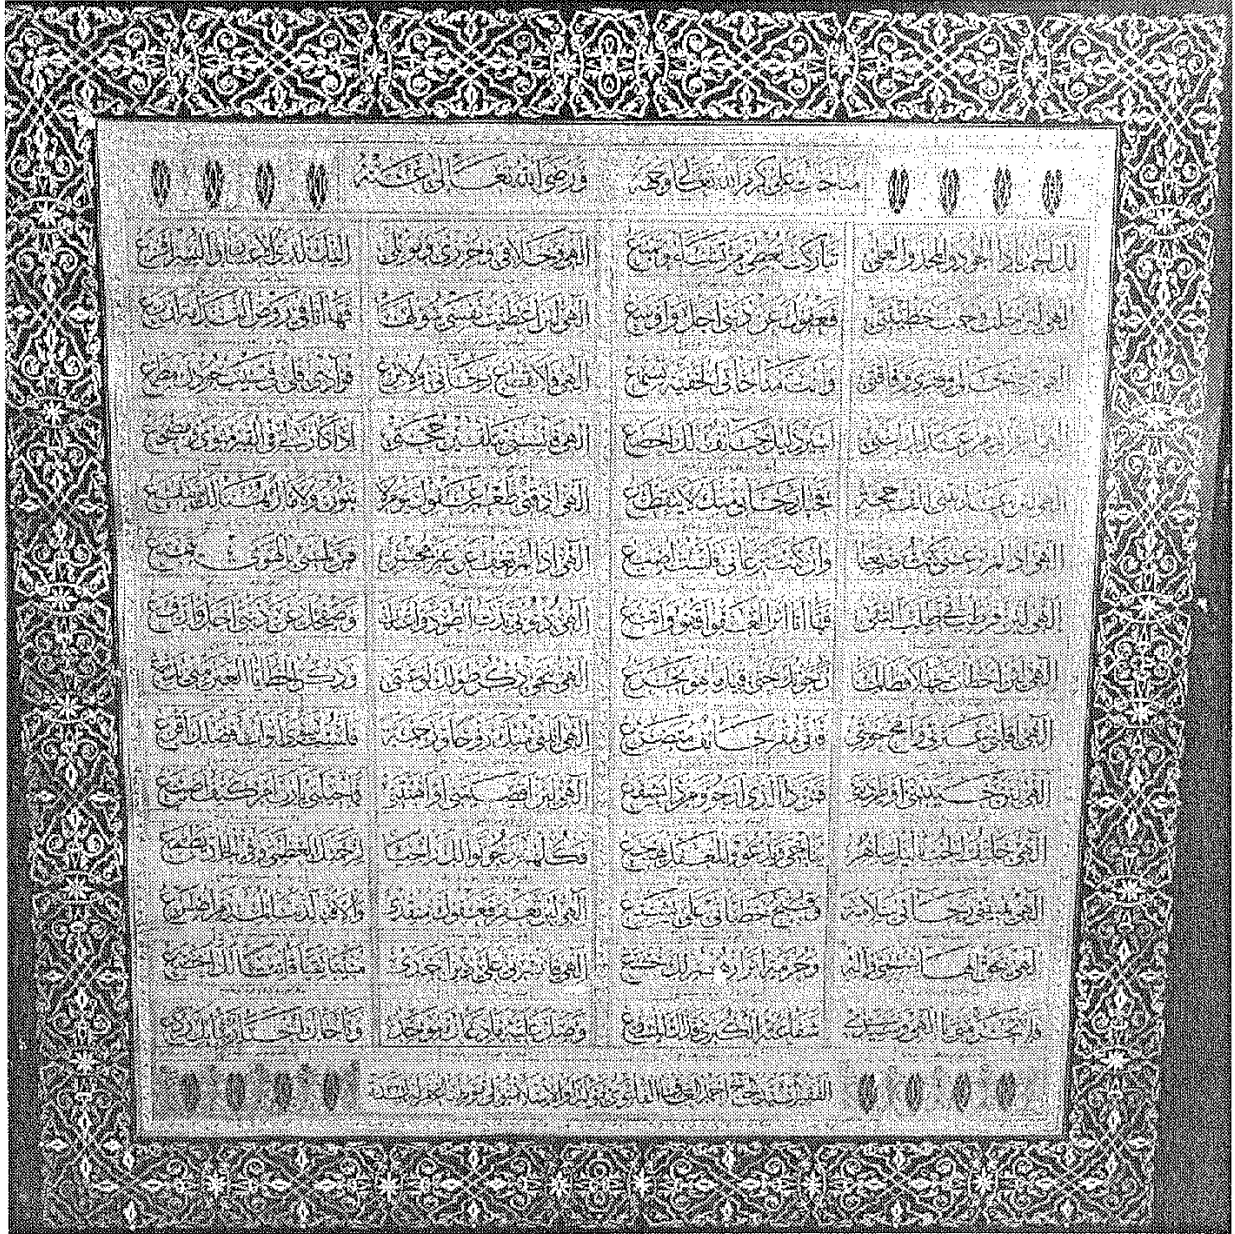 مناجات علي كرم الله تعالى وجهه ورضي الله تعالى عنه
لك الحمد يا ذا الجود والمجد والعلى تباركت تعطي من تشاء وتمنع الهي وخلاقي وحرزي وموئلي اليك لدى الاعسار واليسر افزع
الهي لئن جلت وجمت خطيئتي فعفوك عن ذنبي اجل واوسع الهي لئن اعطيت نفسي سؤلها فها انا في روض الندامة ارتع
الهي ترى حالي وفقري وفاقتي وانت مناجاتي الخفية تسمع الهي فلا تقطع رجائي ولا تزغ فؤادي فلي في سيب جودك مطمع
الهي اجرني من عذابك انني اسير ذليل خائف لك اخضع الهي فآنسني بتلقين حجتي اذا كان لي في القبر مثوى ومضجع
الهي لئن عذبتني الف حجة فحبل رجائي منك لا يتقطع الهي اذقني طعم عفوك يوم لا بنون ولا مال هنالك ينفع
الهي اذا لم ترعني كنت ضائعا وان كنت ترعاني فلست اضيع الهي اذا لم تعف عن غير محسن فمن لمسيء بالهوى يتمتع
الهي لئن فرطت في طلب التقى فها انا اثر العفو اقفو واتبع الهي ذنوبي بذت الطود واعتلت وصفحك عن ذنبي اجل وارفع
الهي لئن اخطأت جهلا فطالما رجوتك حتى قيل ما هو يجزع الهي ينحي ذكر طولك لوعتي وذكر الخطايا العين مني يدمع
الهي اقلني عثرتي وامح حوبتي فاني مقر خائف متضرع الهي انلني منك روحا ورحمة فلست سوى ابواب فضلك اقرع
الهي لئن خيبتني او طردتني فمن ذا الذي ارجو ومن ذا يشفع الهي لئن اقصيتني او اهنتني فما حيلتي يا رب ام كيف اصنع
الهي حليف الحب بالليل ساهر يناجي ويدعو والمغفل يهجع وكلهم يرجو نوالك راجيا لرحمتك العظمى وفي الخلد يطمع
الهي يمنيني رجائي سلامة وقبح خطيئاتي علي يشنع الهي فان تعفو فعفوك منقذي والا فبالذنب المدمر اصرع
الهي بحق الهاشمي وآله وحرمة ابرار هم لك خشع الهي فانشرني على دين احمد منيبا تقيا قانتا لك اخضع
الهي وسيدي شفاعته الكبرى فذاك المشفع وصل عليه ما دعاك موحد وناجاك اخيار ببابك ركع